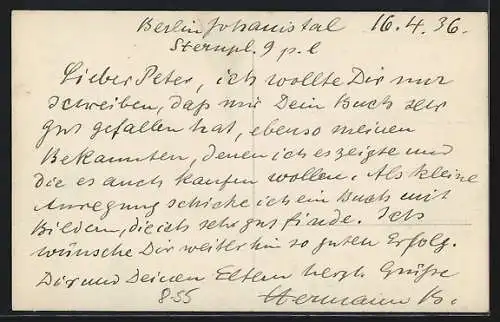 Berlin Johanistal 16.4.36.
Sternpl. 9 p. l
Lieber Peter, ich wollte Dir nur
schreiben, daß mir Dein Buch sehr
gut gefallen hat, ebenso meinen
Bekannten, denen ich es zeigte und
die es auch kaufen wollen. Als kleine
Anregung schicke ich ein Buch mit
Bildern, die ich sehr gut finde. Ich
wünsche Dir weiterhin so guten Erfolg.
Dir und Deinen Eltern herzl. Grüße
855 Hermann B.